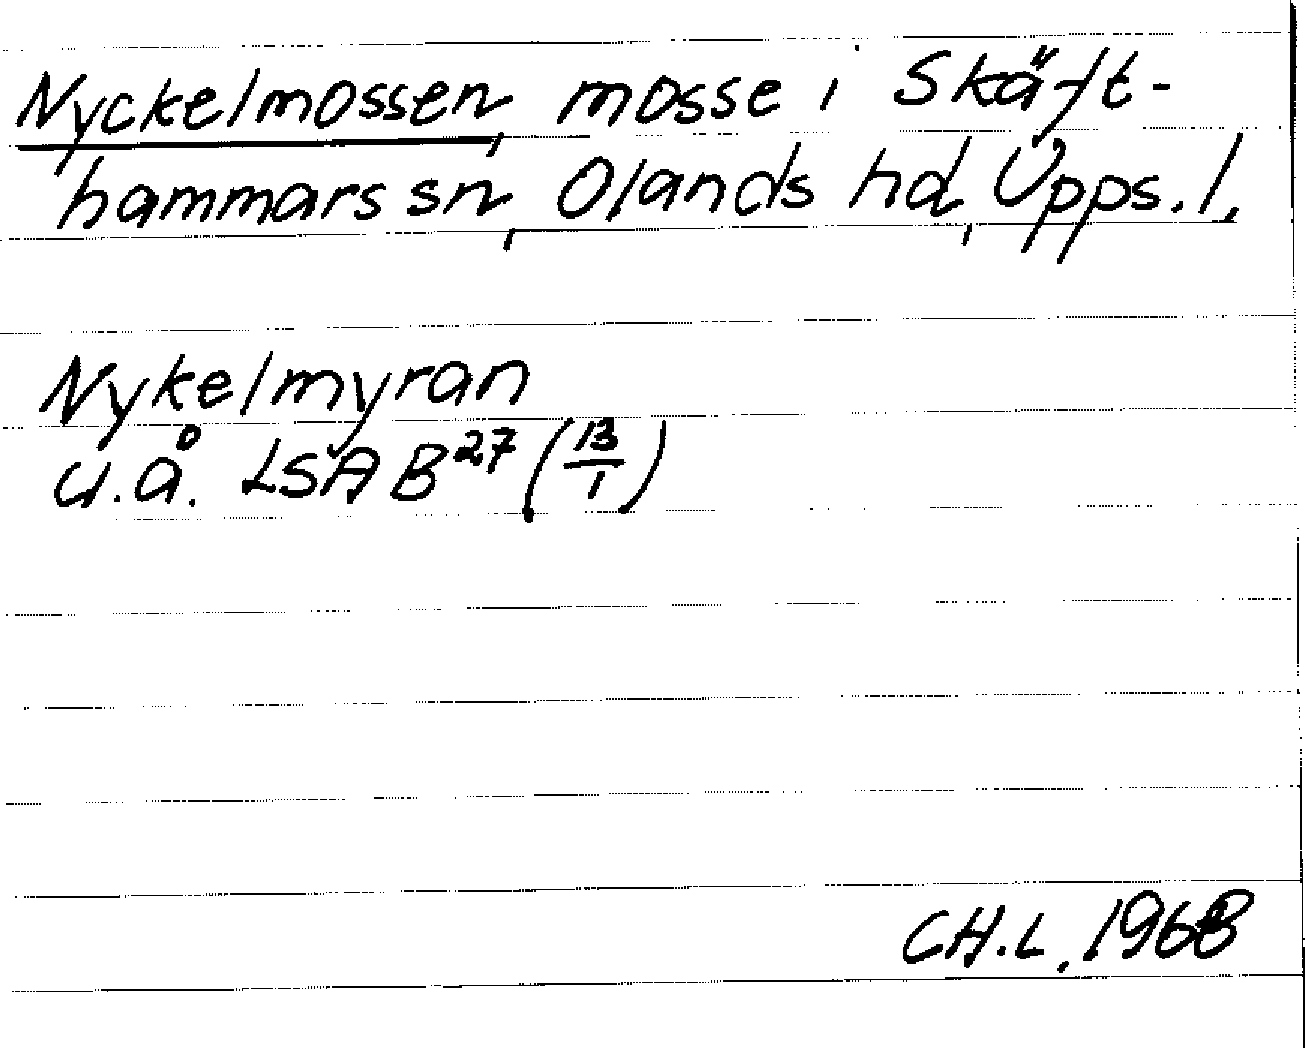 Nyckelmossen, mosse i Skäft-
hammars sn, Olands hd, Upps. l.
Nykelmyran
u.å. LSA B²⁷ (13/1)
CH.L. 1968